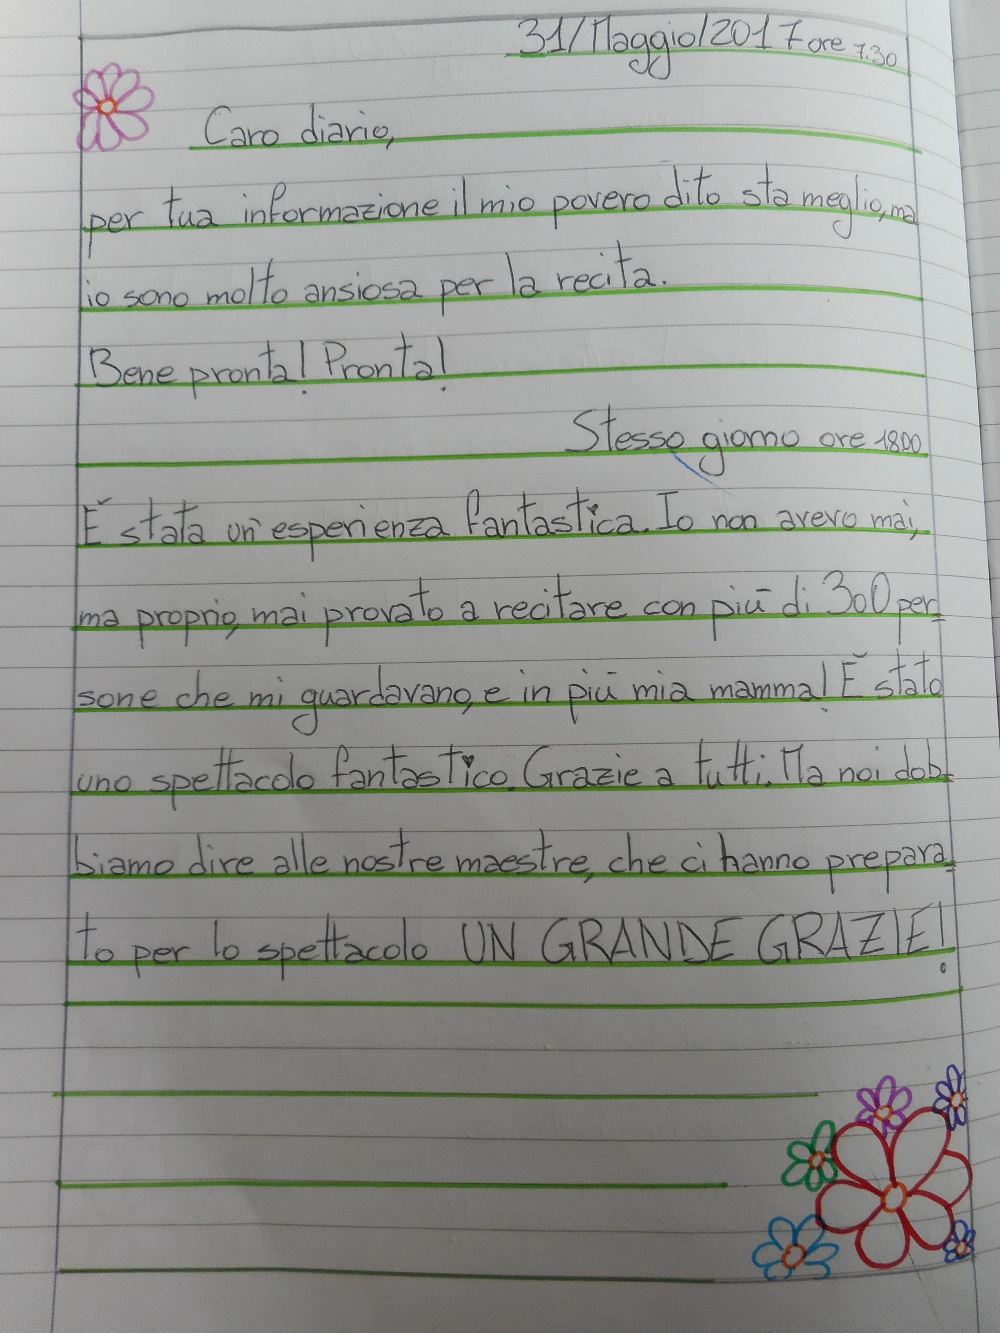 31/Maggio/2017 ore 7.30
Caro diario,
per tua informazione il mio povero dito sta meglio, ma
io sono molto ansiosa per la recita.
Bene pronta! Pronta!
Stesso giorno ore 1800
È stata un'esperienza fantastica. Io non avevo mai,
ma proprio, mai provato a recitare con più di 300 per=
sone che mi guardavano, e in più mia mamma! È stato
uno spettacolo fantastico. Grazie a tutti. Ma noi dob=
biamo dire alle nostre maestre, che ci hanno prepara=
to per lo spettacolo UN GRANDE GRAZIE!